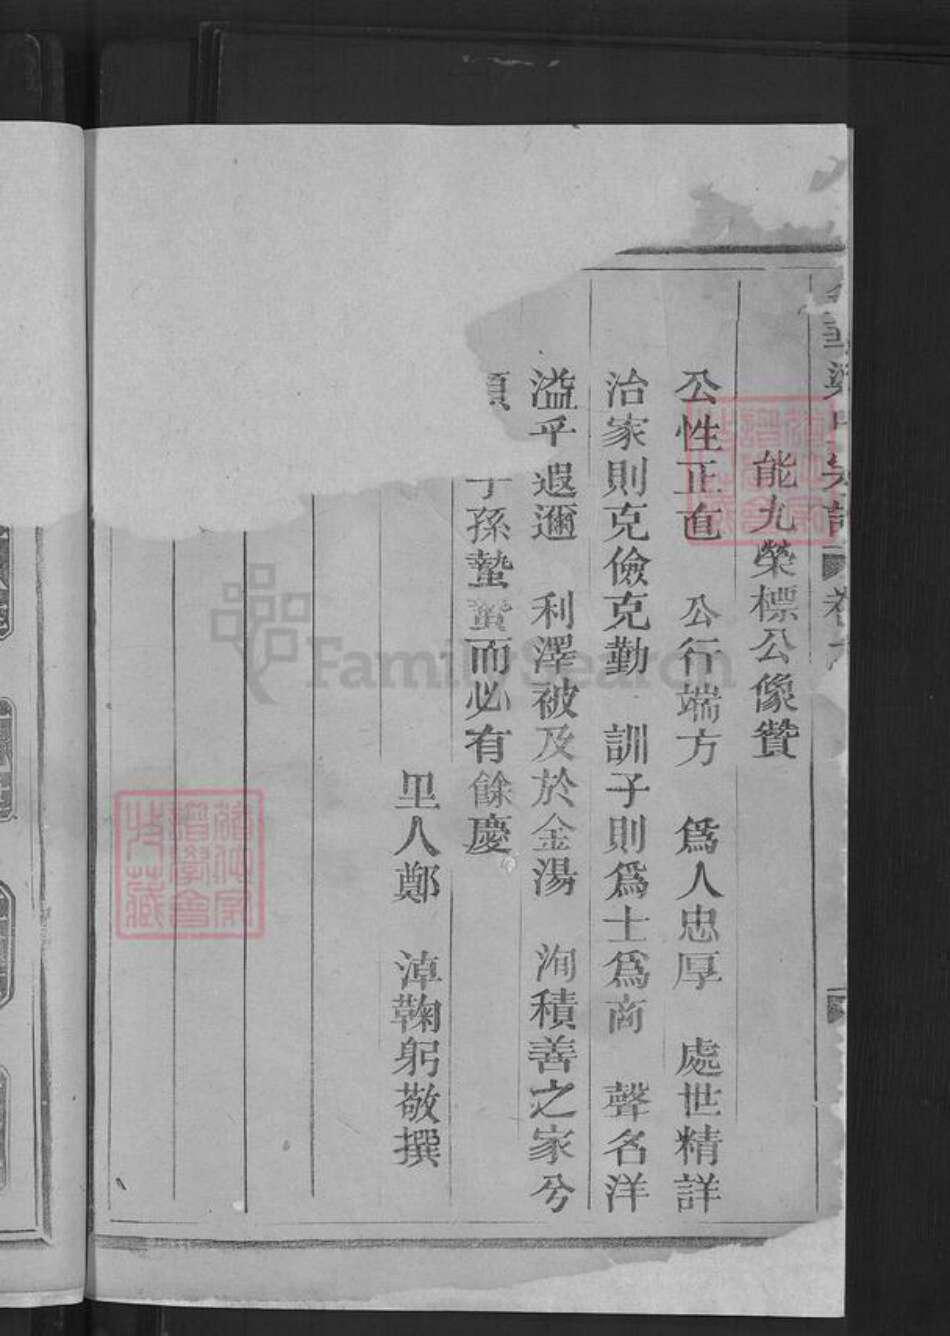 能九榮標公像贊
公性正直　公行端方　爲人忠厚　處世精詳
治家則克儉克勤　訓子則爲士爲商　聲名洋
溢乎遐邇　利澤被及於金湯　洵積善之家兮
孫蟄蟄而必有餘慶
里人鄭　淖鞠躬敬撰
FamilySearch